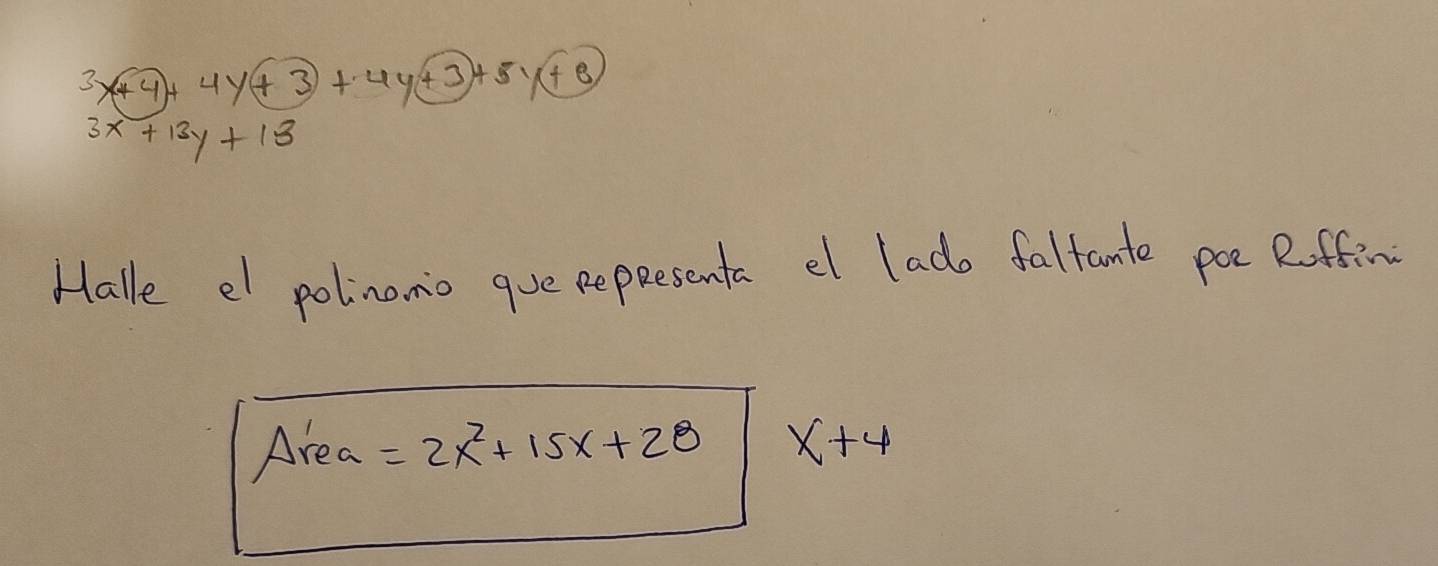 3x+4+ 4y+3 + 4y+3+5y+8
3x + 13y + 18
Halle el polinomio que representa el lado faltante por Ruffini
Área = 2x²+15x+28 x+4